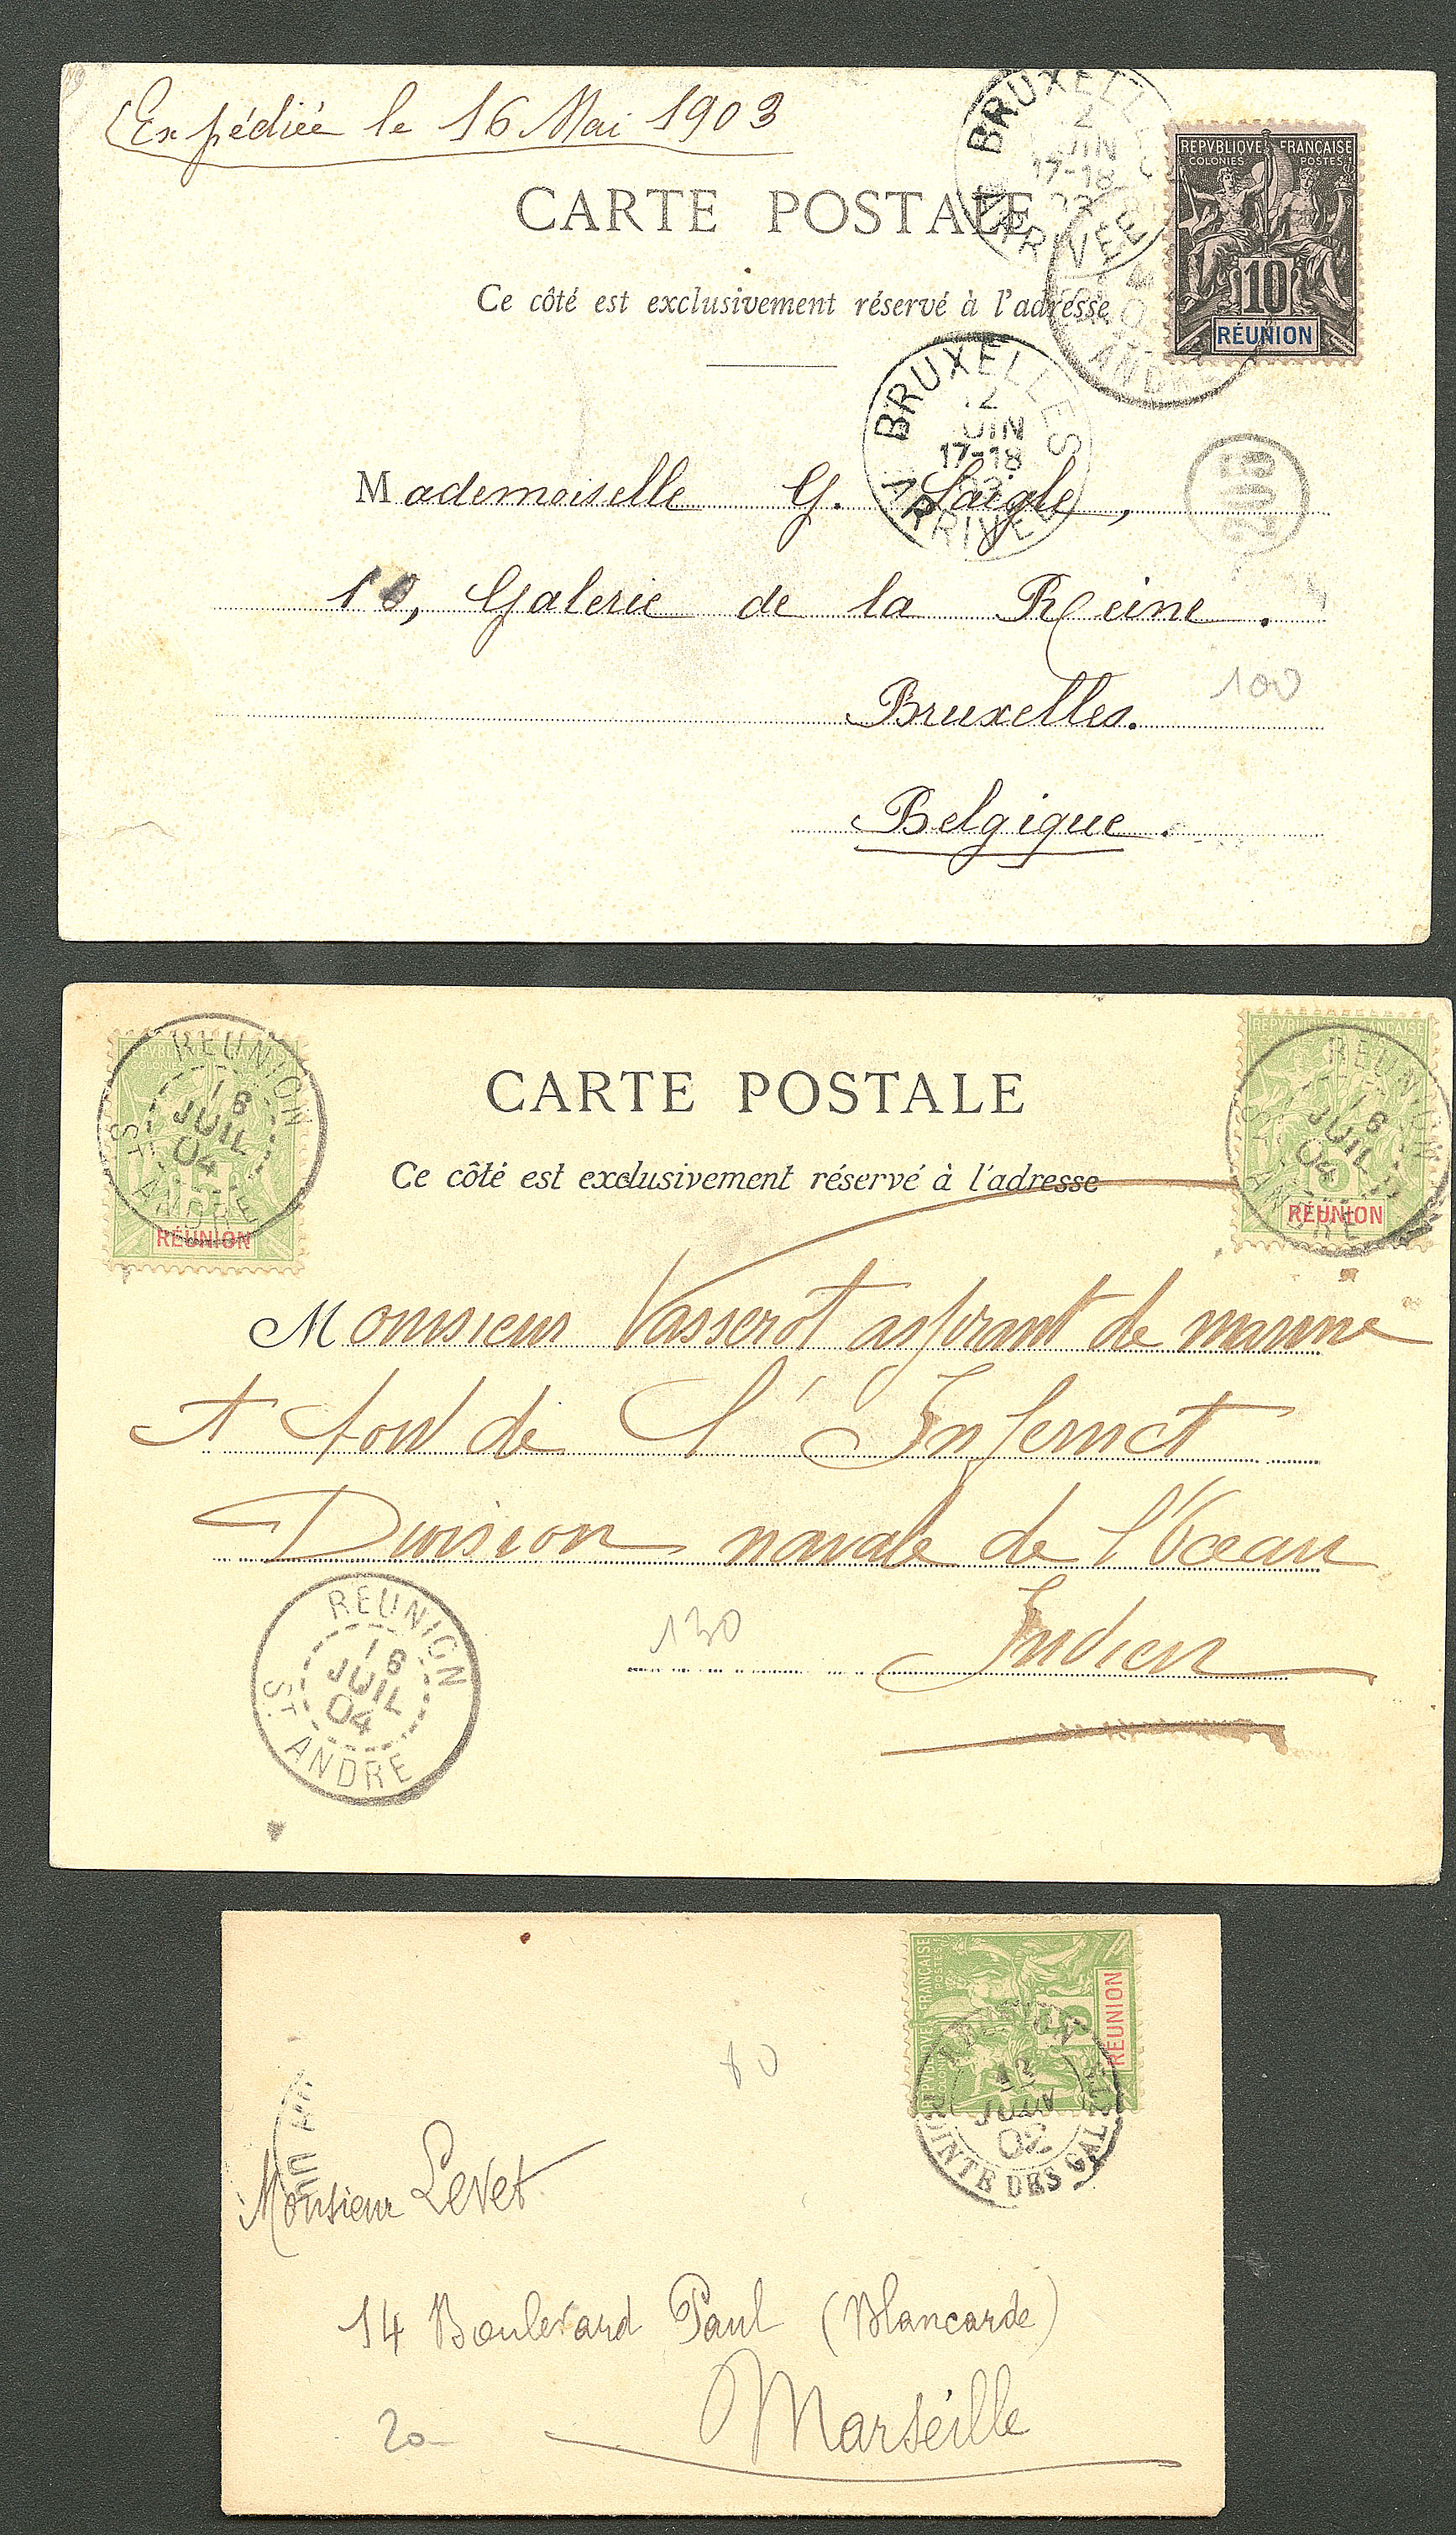 Expédiée le 16 Mai 1903
BRUXELLES
2
JUIN
17-18
ARRIVEE
REPVBLIQVE FRANÇAISE
COLONIES POSTES
10
RÉUNION
CARTE POSTALE
Ce côté est exclusivement réservé à l'adresse
BRUXELLES
2
JUIN
17-18
03
ARRIVEE
ANDRE
Mademoiselle G. Laigle,
10, Galerie de la Reine.
100
Bruxelles.
Belgique.
REUNION
16
JUIL
04
ST ANDRE
RÉUNION
REPVBLIQVE FRANÇAISE
REUNION
16
JUIL
04
ST ANDRE
5
RÉUNION
CARTE POSTALE
Ce côté est exclusivement réservé à l'adresse
Monsieur Vasserot aspirant de marine
A bord de l'Infernet
Division navale de l'Océan
130
Indien
REUNION
16
JUIL
04
ST ANDRE
REPVBLIQVE FRANÇAISE
COLONIES POSTES
5
RÉUNION
02
POINTE DES GALETS
80
Monsieur Levet
14 Boulevard Paul (Blancarde)
Marseille
20